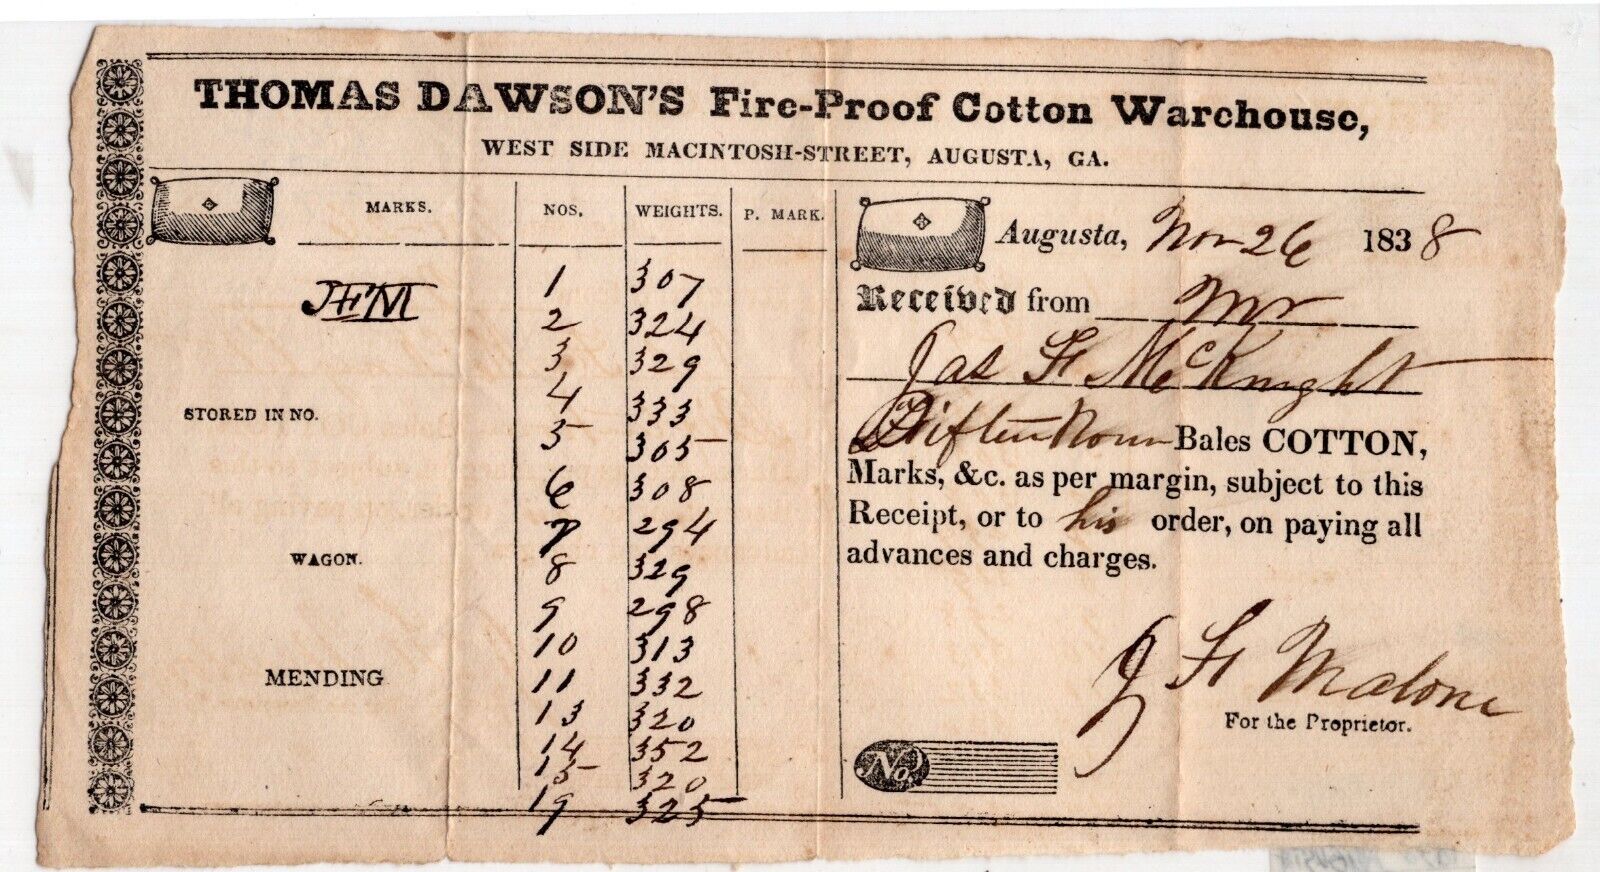 THOMAS DAWSON'S Fire-Proof Cotton Warehouse,
WEST SIDE MACINTOSH-STREET, AUGUSTA, GA.
MARKS. NOS. WEIGHTS. P. MARK.
JFM
STORED IN NO.
WAGON.
MENDING
1 307
2 324
3 329
4 333
5 305
6 308
7 294
8 329
9 298
10 313
11 332
13 320
14 352
15 320
19 325
Augusta, Nov 26 1838
Received from Mr
Jas F McKnight
Fifteen Bales COTTON,
Marks, &c. as per margin, subject to this
Receipt, or to his order, on paying all
advances and charges.
J F Malone
For the Proprietor.
No.